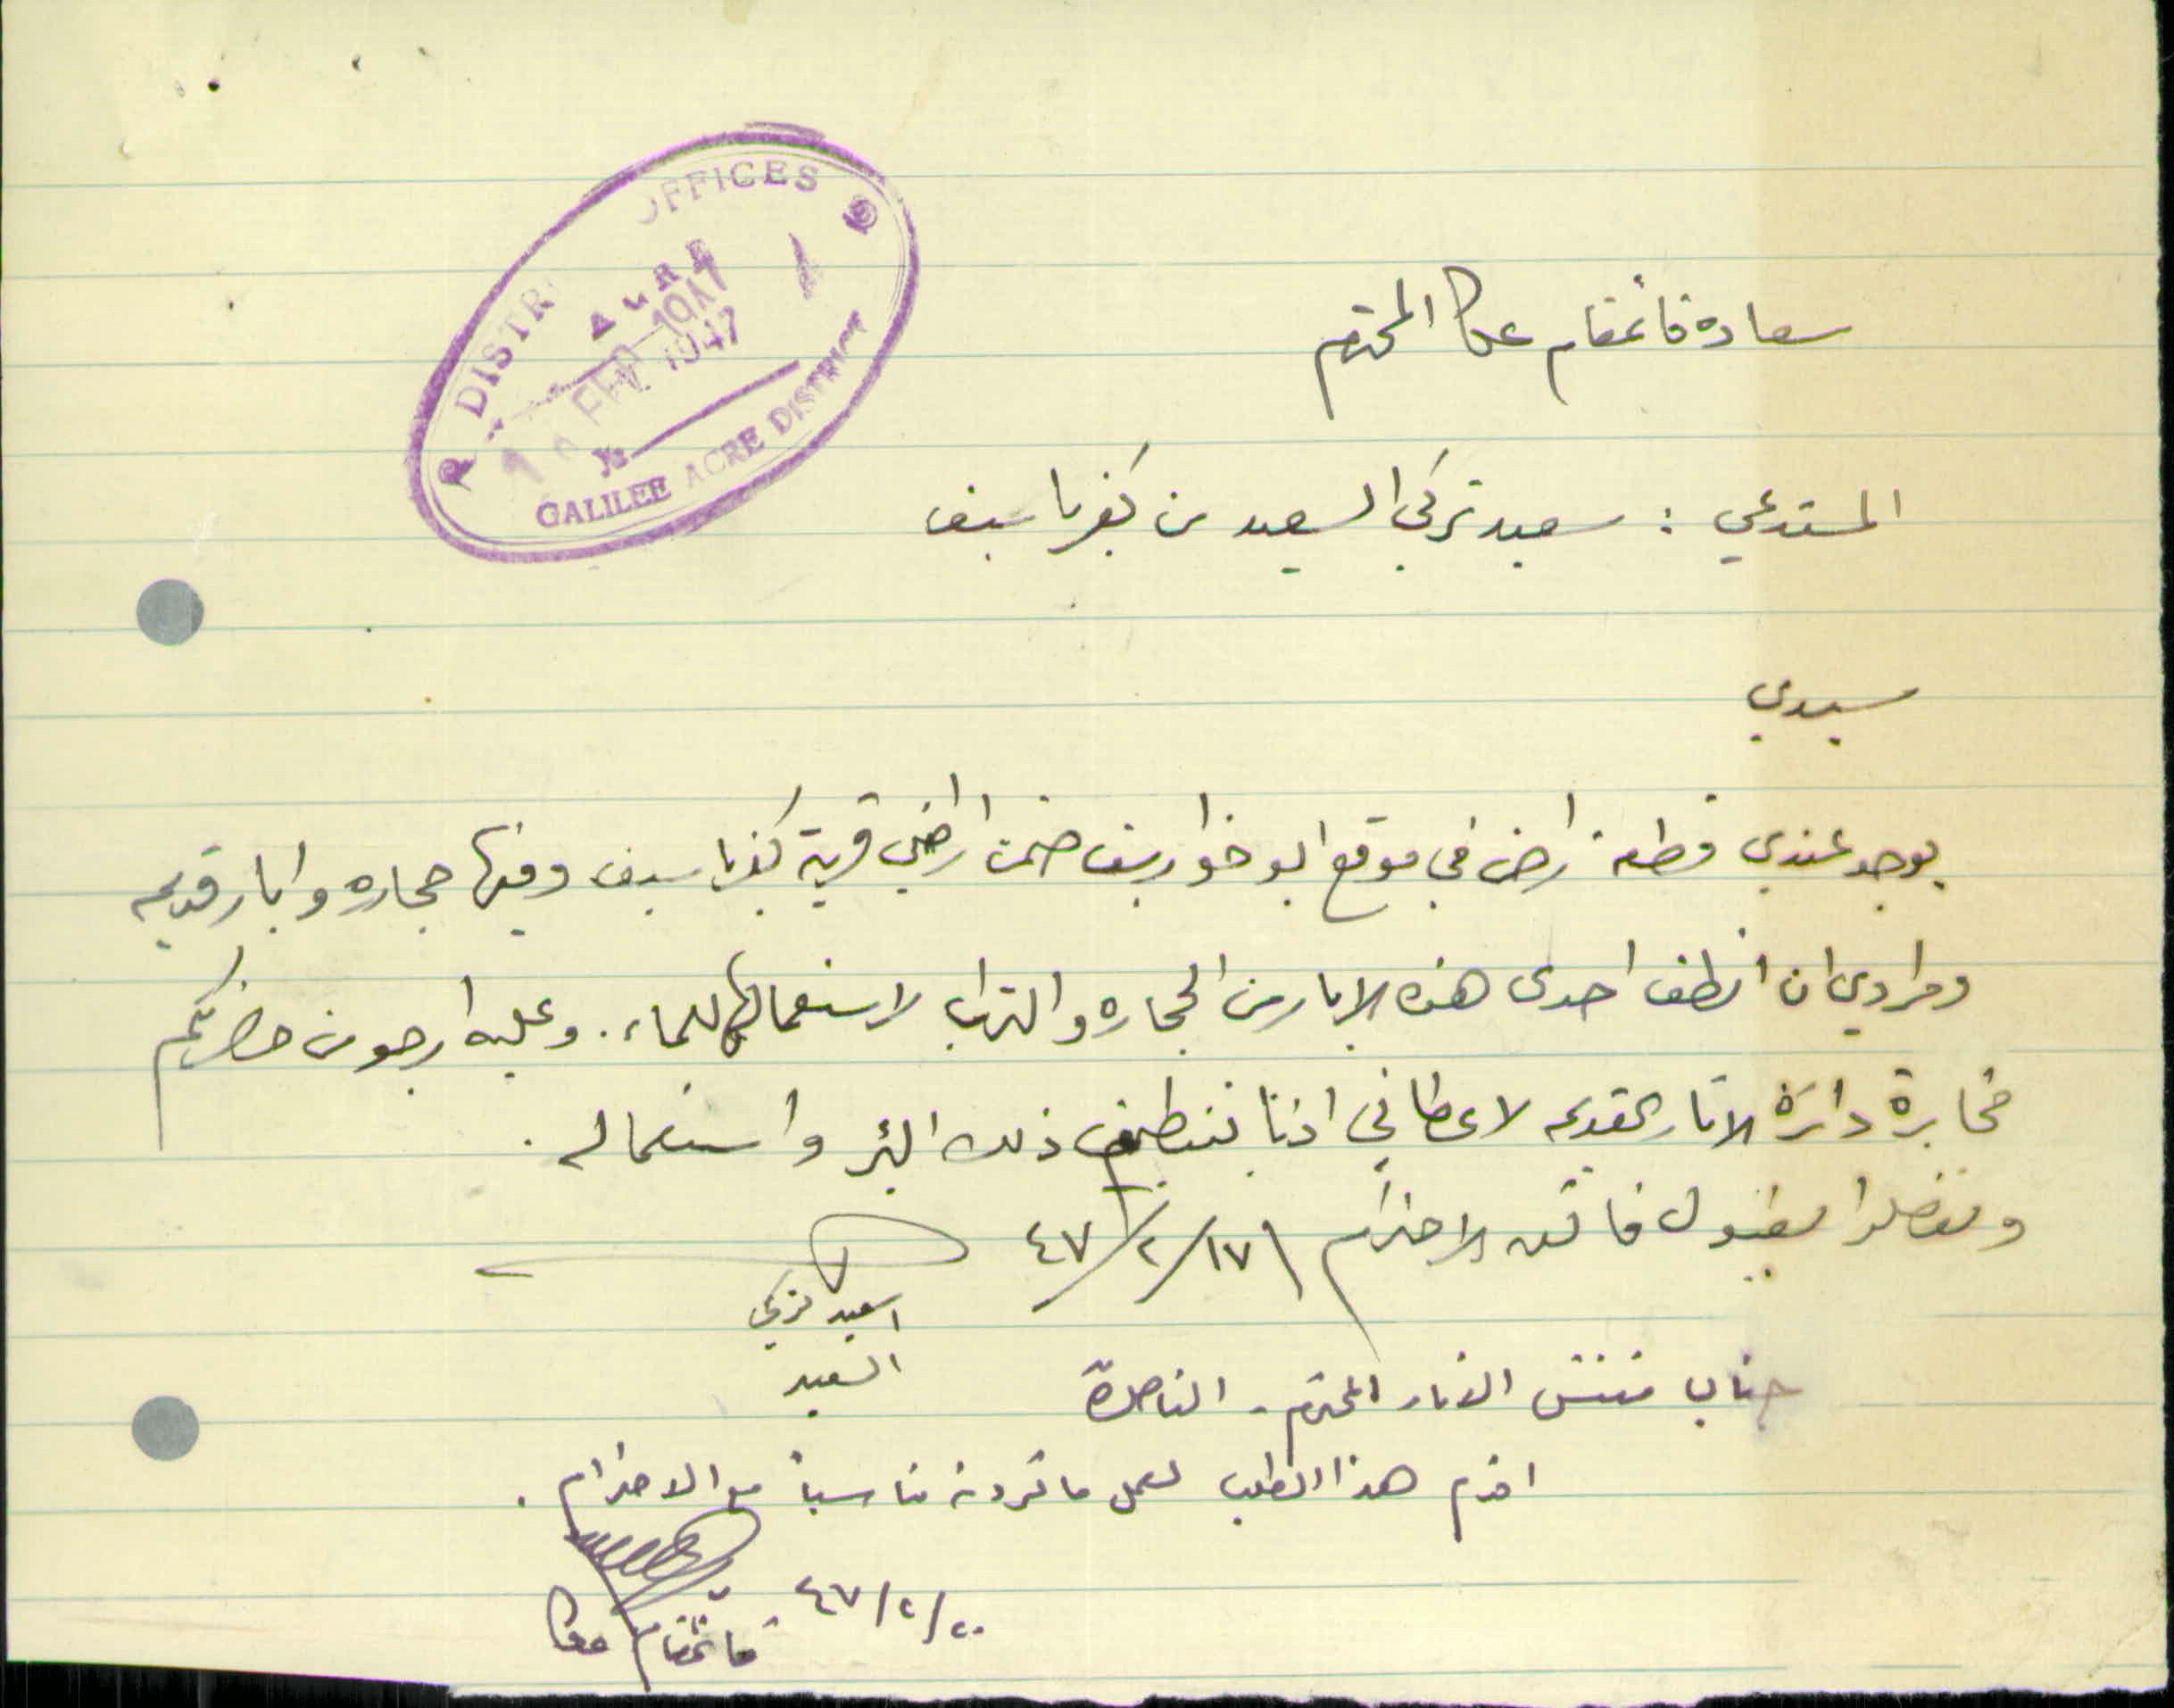 DISTR OFFICES
ACRE
FEB 1947
GALILEE ACRE DISTRICT
سعادة قائمقام عكا المحترم
المستدعي : سعيد تركي السعيد من كفرياسيف
سيدي
يوجد عندي قطعة ارض في موقع ابو خواريف ضمن اراضي قرية كفرياسيف وفيها حجاره وابار قديمه
ومرادي ان انظف احدى هذه الابار من الحجاره والتراب لاستعمالها للماء. وعليه ارجو من حضرتكم
مخابرة دائرة الاثار القديمه لاعطائي اذنا بتنظيف ذلك البئر واستعماله .
وتفضلوا بقبول فائق الاحترام ١٧/٢/٤٧
اسعيد تركي
السعيد
جناب مفتش الاثار المحترم - الناصرة
اقدم هذا الطلب لعمل ما ترونه مناسباً مع الاحترام .
٢٠/٢/٤٧
قائمقام عكا